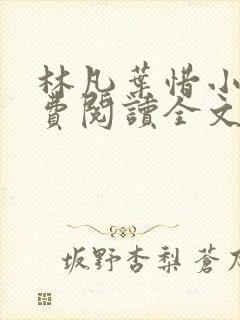 林凡葉惜小
費閱讀全文
坂野杏梨蒼